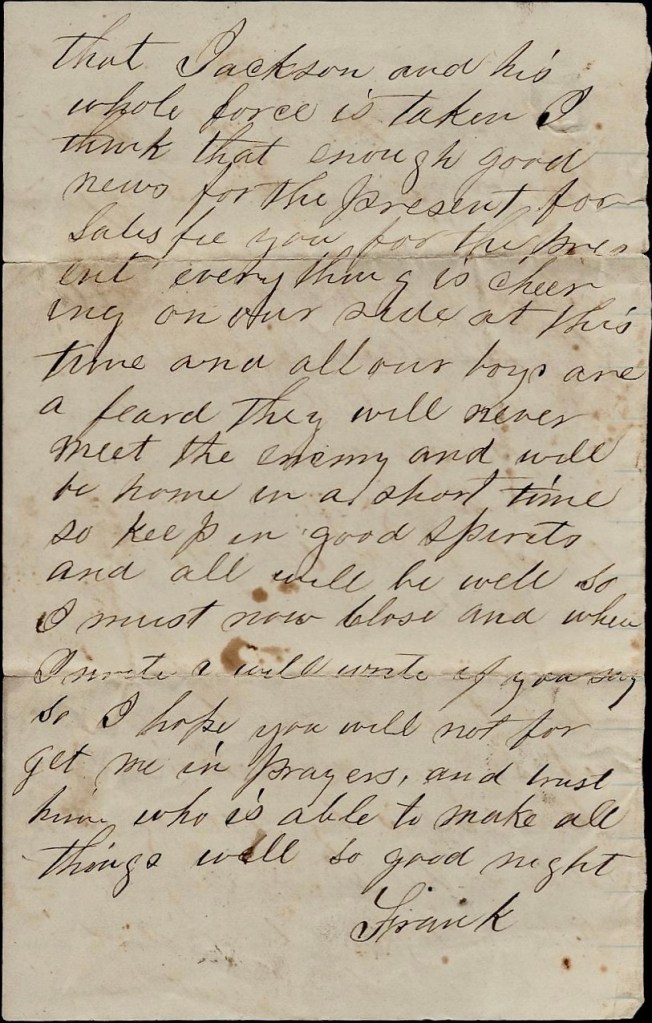 that Jackson and his
whole force is taken I
think that enough good
news for the present for
Satisfie you for the pres
ent every thing is cheer
ing on our side at this
time and all our boys are
a feard they will never
meet the enemy and will
be home in a short time
so keep in good spirits
and all will be well so
I must now close and when
I write I will write if you say
so I hope you will not for
get me in prayers, and trust
him who is able to make all
things well so good night
Frank